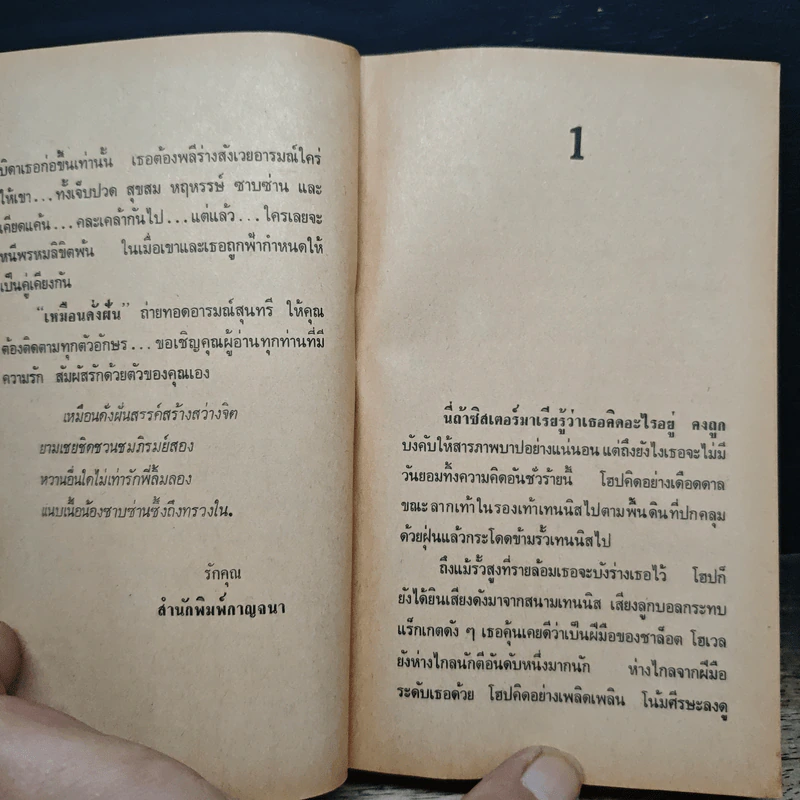 บิดาเธอก่อขึ้นเท่านั้น เธอต้องพลีร่างสังเวยอารมณ์ใคร่
ให้เขา...ทั้งเจ็บปวด สุขสม หฤหรรษ์ ซาบซ่าน และ
เคียดแค้น...คละเคล้ากันไป...แต่แล้ว...ใครเลยจะ
หนีพรหมลิขิตพ้น ในเมื่อเขาและเธอถูกฟ้ากำหนดให้
เป็นคู่เคียงกัน
"เหมือนดั่งฝัน" ถ่ายทอดอารมณ์สุนทรี ให้คุณ
ต้องติดตามทุกตัวอักษร...ขอเชิญคุณผู้อ่านทุกท่านที่มี
ความรัก สัมผัสรักด้วยตัวของคุณเอง
เหมือนดั่งฝันสรรค์สร้างสว่างจิต
ยามเชยชิดชวนชมภิรมย์สอง
หวานอื่นใดไม่เท่ารักพี่ลิ้มลอง
แนบเนื้อน้องซาบซ่านซึ้งถึงทรวงใน.
รักคุณ
สำนักพิมพ์กาญจนา
1
นี่ถ้าซิสเตอร์มาเรียรู้ว่าเธอคิดอะไรอยู่ คงถูก
บังคับให้สารภาพบาปอย่างแน่นอน แต่ถึงยังไงเธอจะไม่มี
วันยอมทิ้งความคิดอันชั่วร้ายนี้ โฮปคิดอย่างเดือดดาล
ขณะลากเท้าในรองเท้าเทนนิสไปตามพื้นดินที่ปกคลุม
ด้วยฝุ่นแล้วกระโดดข้ามรั้วเทนนิสไป
ถึงแม้รั้วสูงที่รายล้อมเธอจะบังร่างเธอไว้ โฮปก็
ยังได้ยินเสียงดังมาจากสนามเทนนิส เสียงลูกบอลกระทบ
แร็กเกตดัง ๆ เธอคุ้นเคยดีว่าเป็นฝีมือของชาล็อต โฮเวล
ยังห่างไกลนักตีอันดับหนึ่งมากนัก ห่างไกลจากฝีมือ
ระดับเธอด้วย โฮปคิดอย่างเพลิดเพลิน โน้มศีรษะลงดู